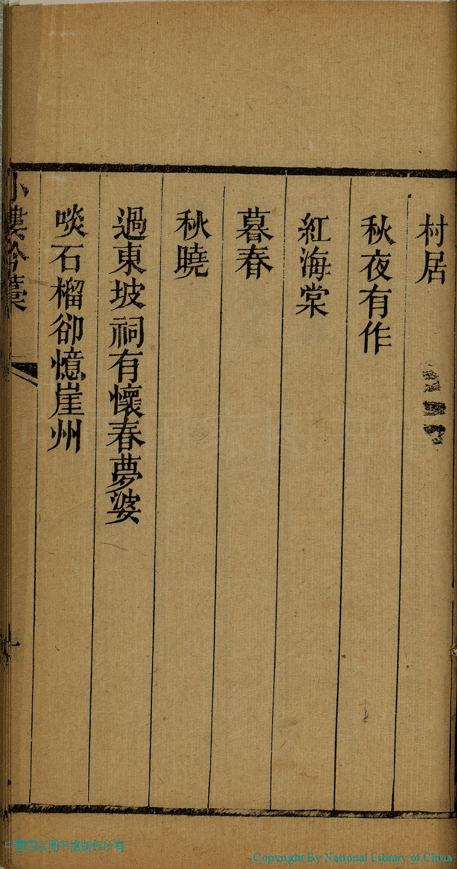 村居
秋夜有作
紅海棠
暮春
秋曉
過東坡祠有懷春夢婆
啖石榴卻憶崖州
Copyright By National Library of China